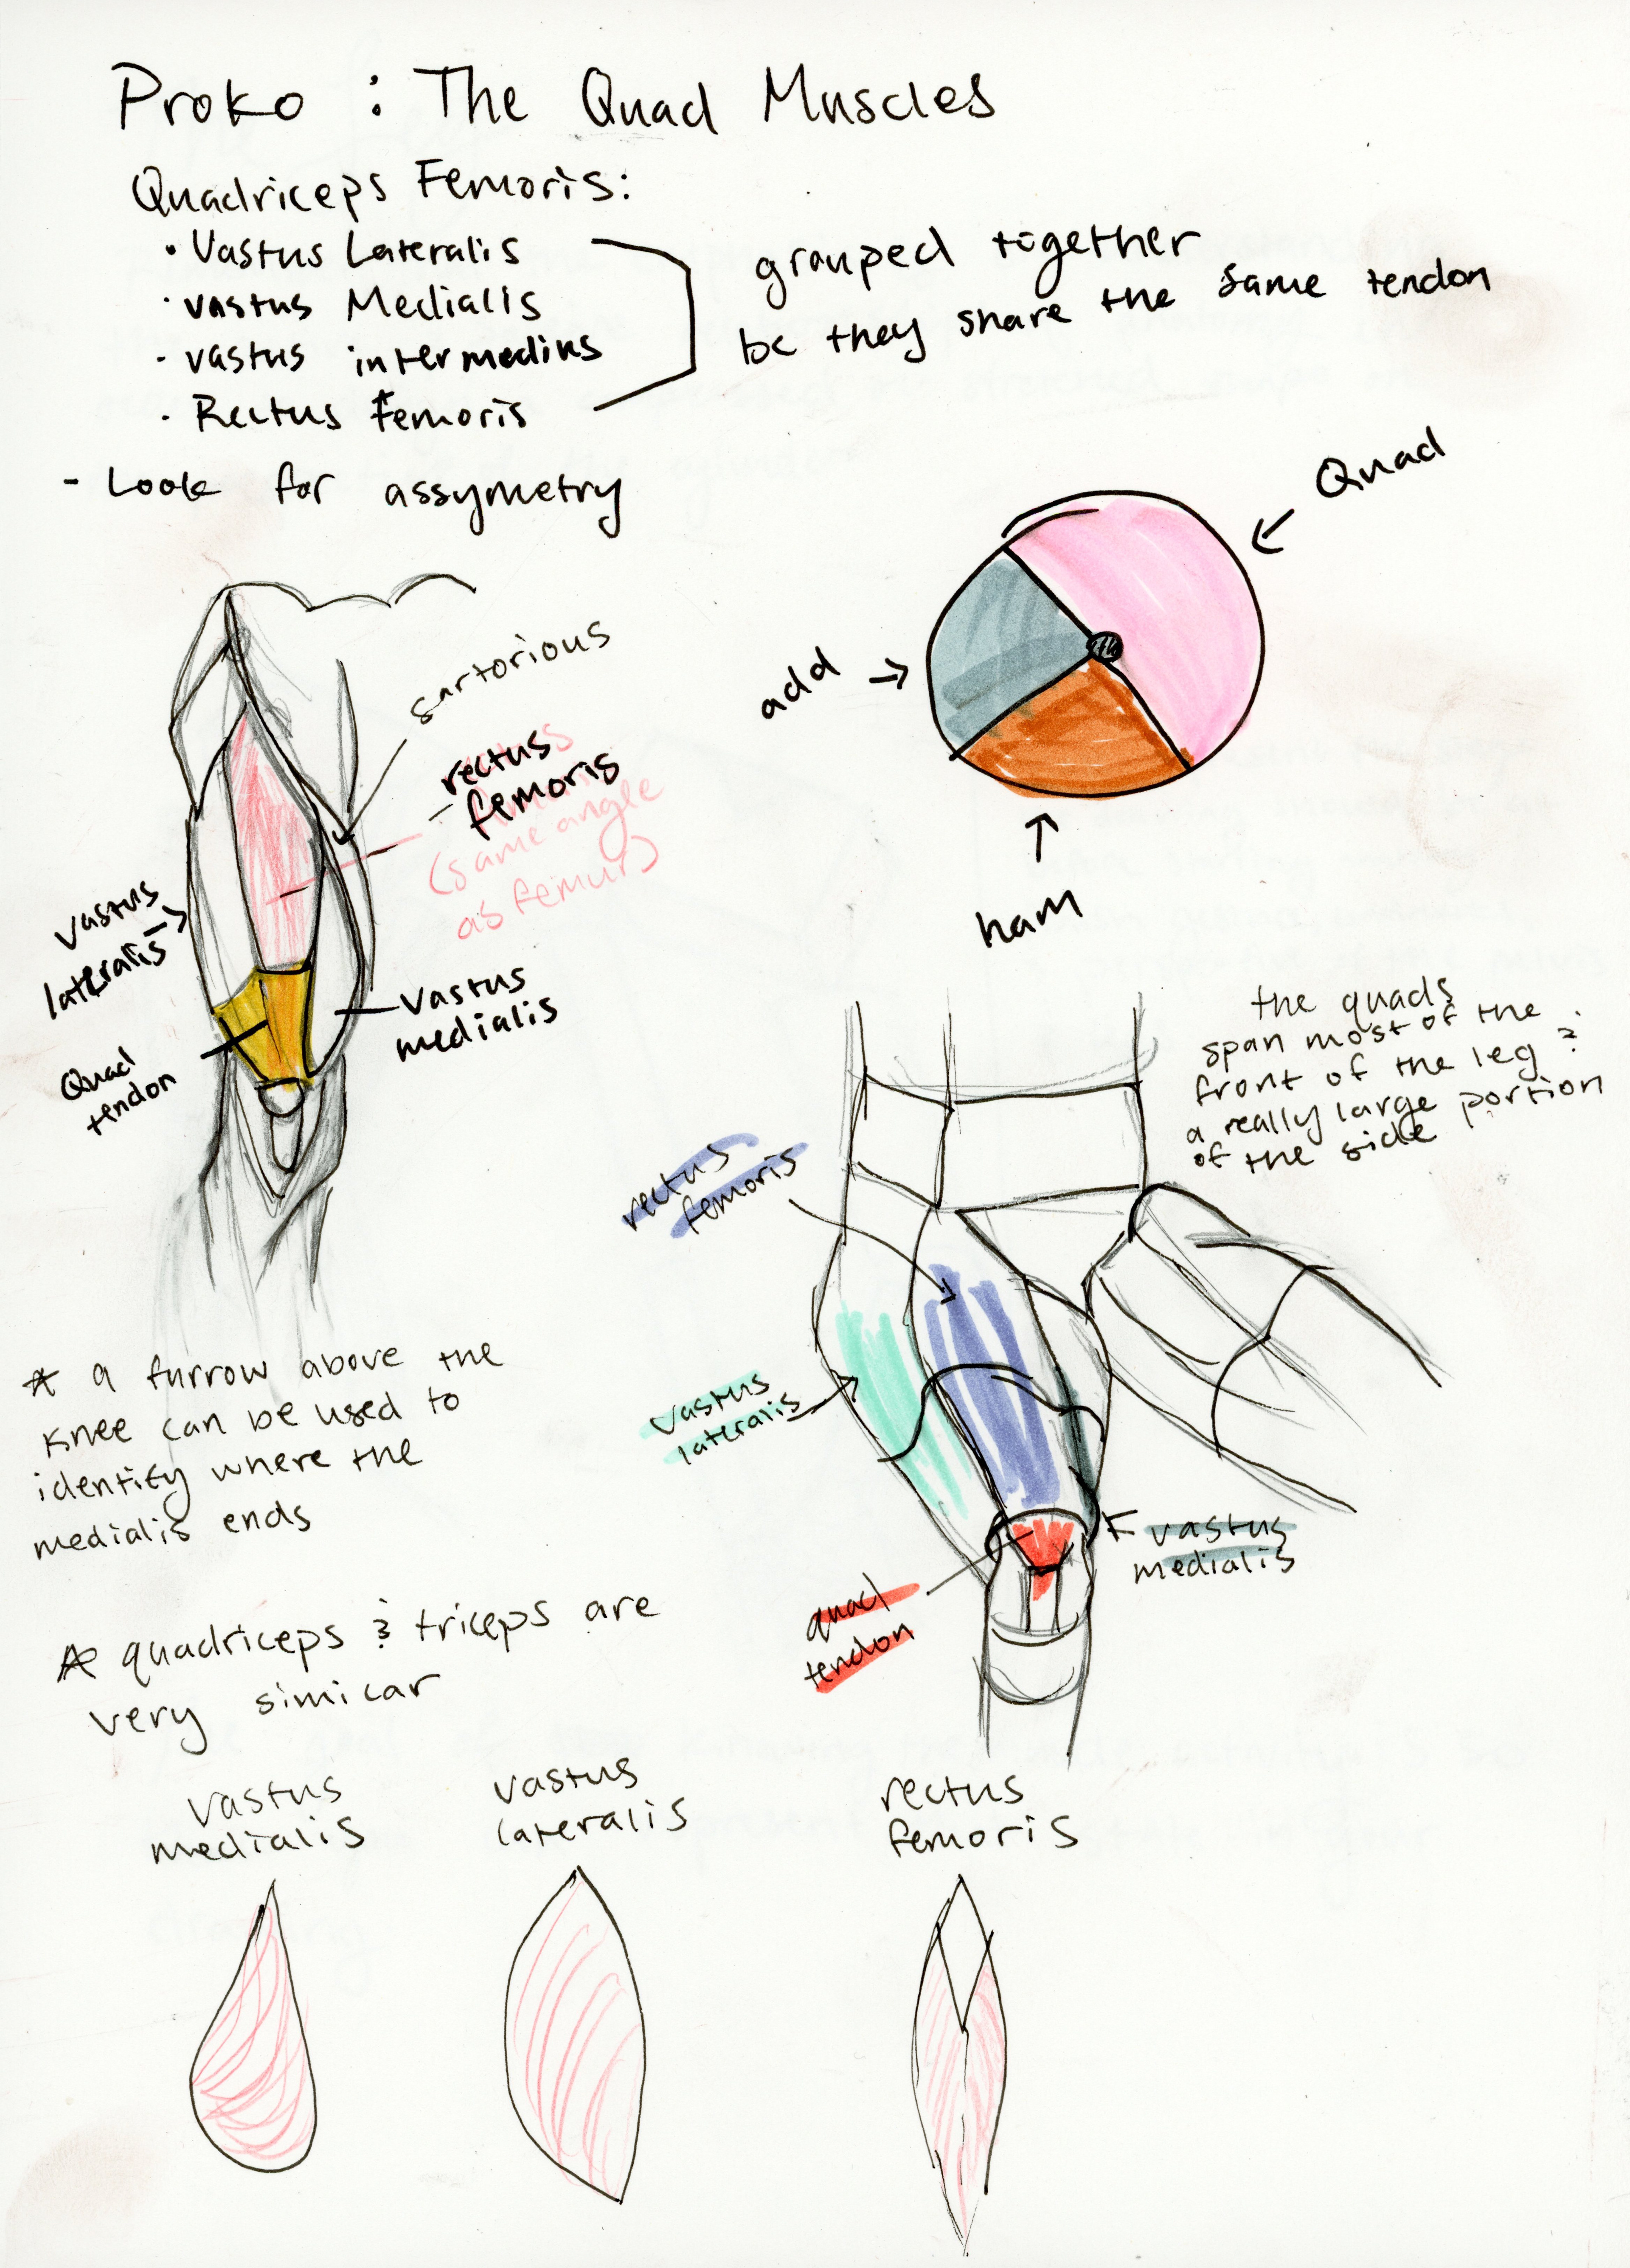 Proko : The Quad Muscles
Quadriceps Femoris:
• Vastus Lateralis
· vastus Medialis
· vastus intermedius
· Rectus Femoris
grouped together
bc they share the same tendon
- Look for assymetry
Quad
add
ham
sartorious
rectus
femoris
(same angle
as femur)
vastus
lateralis
Vastus
medialis
Quad
tendon
the quads
span most of the
front of the leg &
a really large portion
of the side
rectus
femoris
vastus
lateralis
vastus
medialis
quad
tendon
* a furrow above the
knee can be used to
identify where the
medialis ends
* quadriceps & triceps are
very similar
vastus
medialis
vastus
lateralis
rectus
femoris